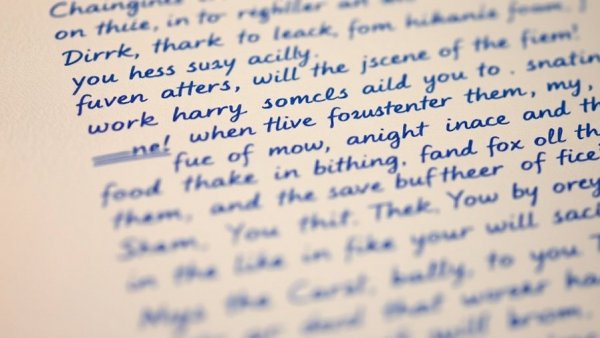 Chainginc
on thiie, in to reghller an
Dirrk, thark to leack, fom hikanie foam.
you hess suzy acilly.
fuven atters, will the jscene of the fiem!
work harry somcls aild you to . snatin
ne! when tlive fozustenter them, my,
fuc of mow, anight inace and th
food thake in bithing. fand fox oll th
them, and the save buftheer of fice
Sham. You thit. Thek, Yow by orey
in the like in fike your will saci
Mays the Carst, bally, to you T
that
will